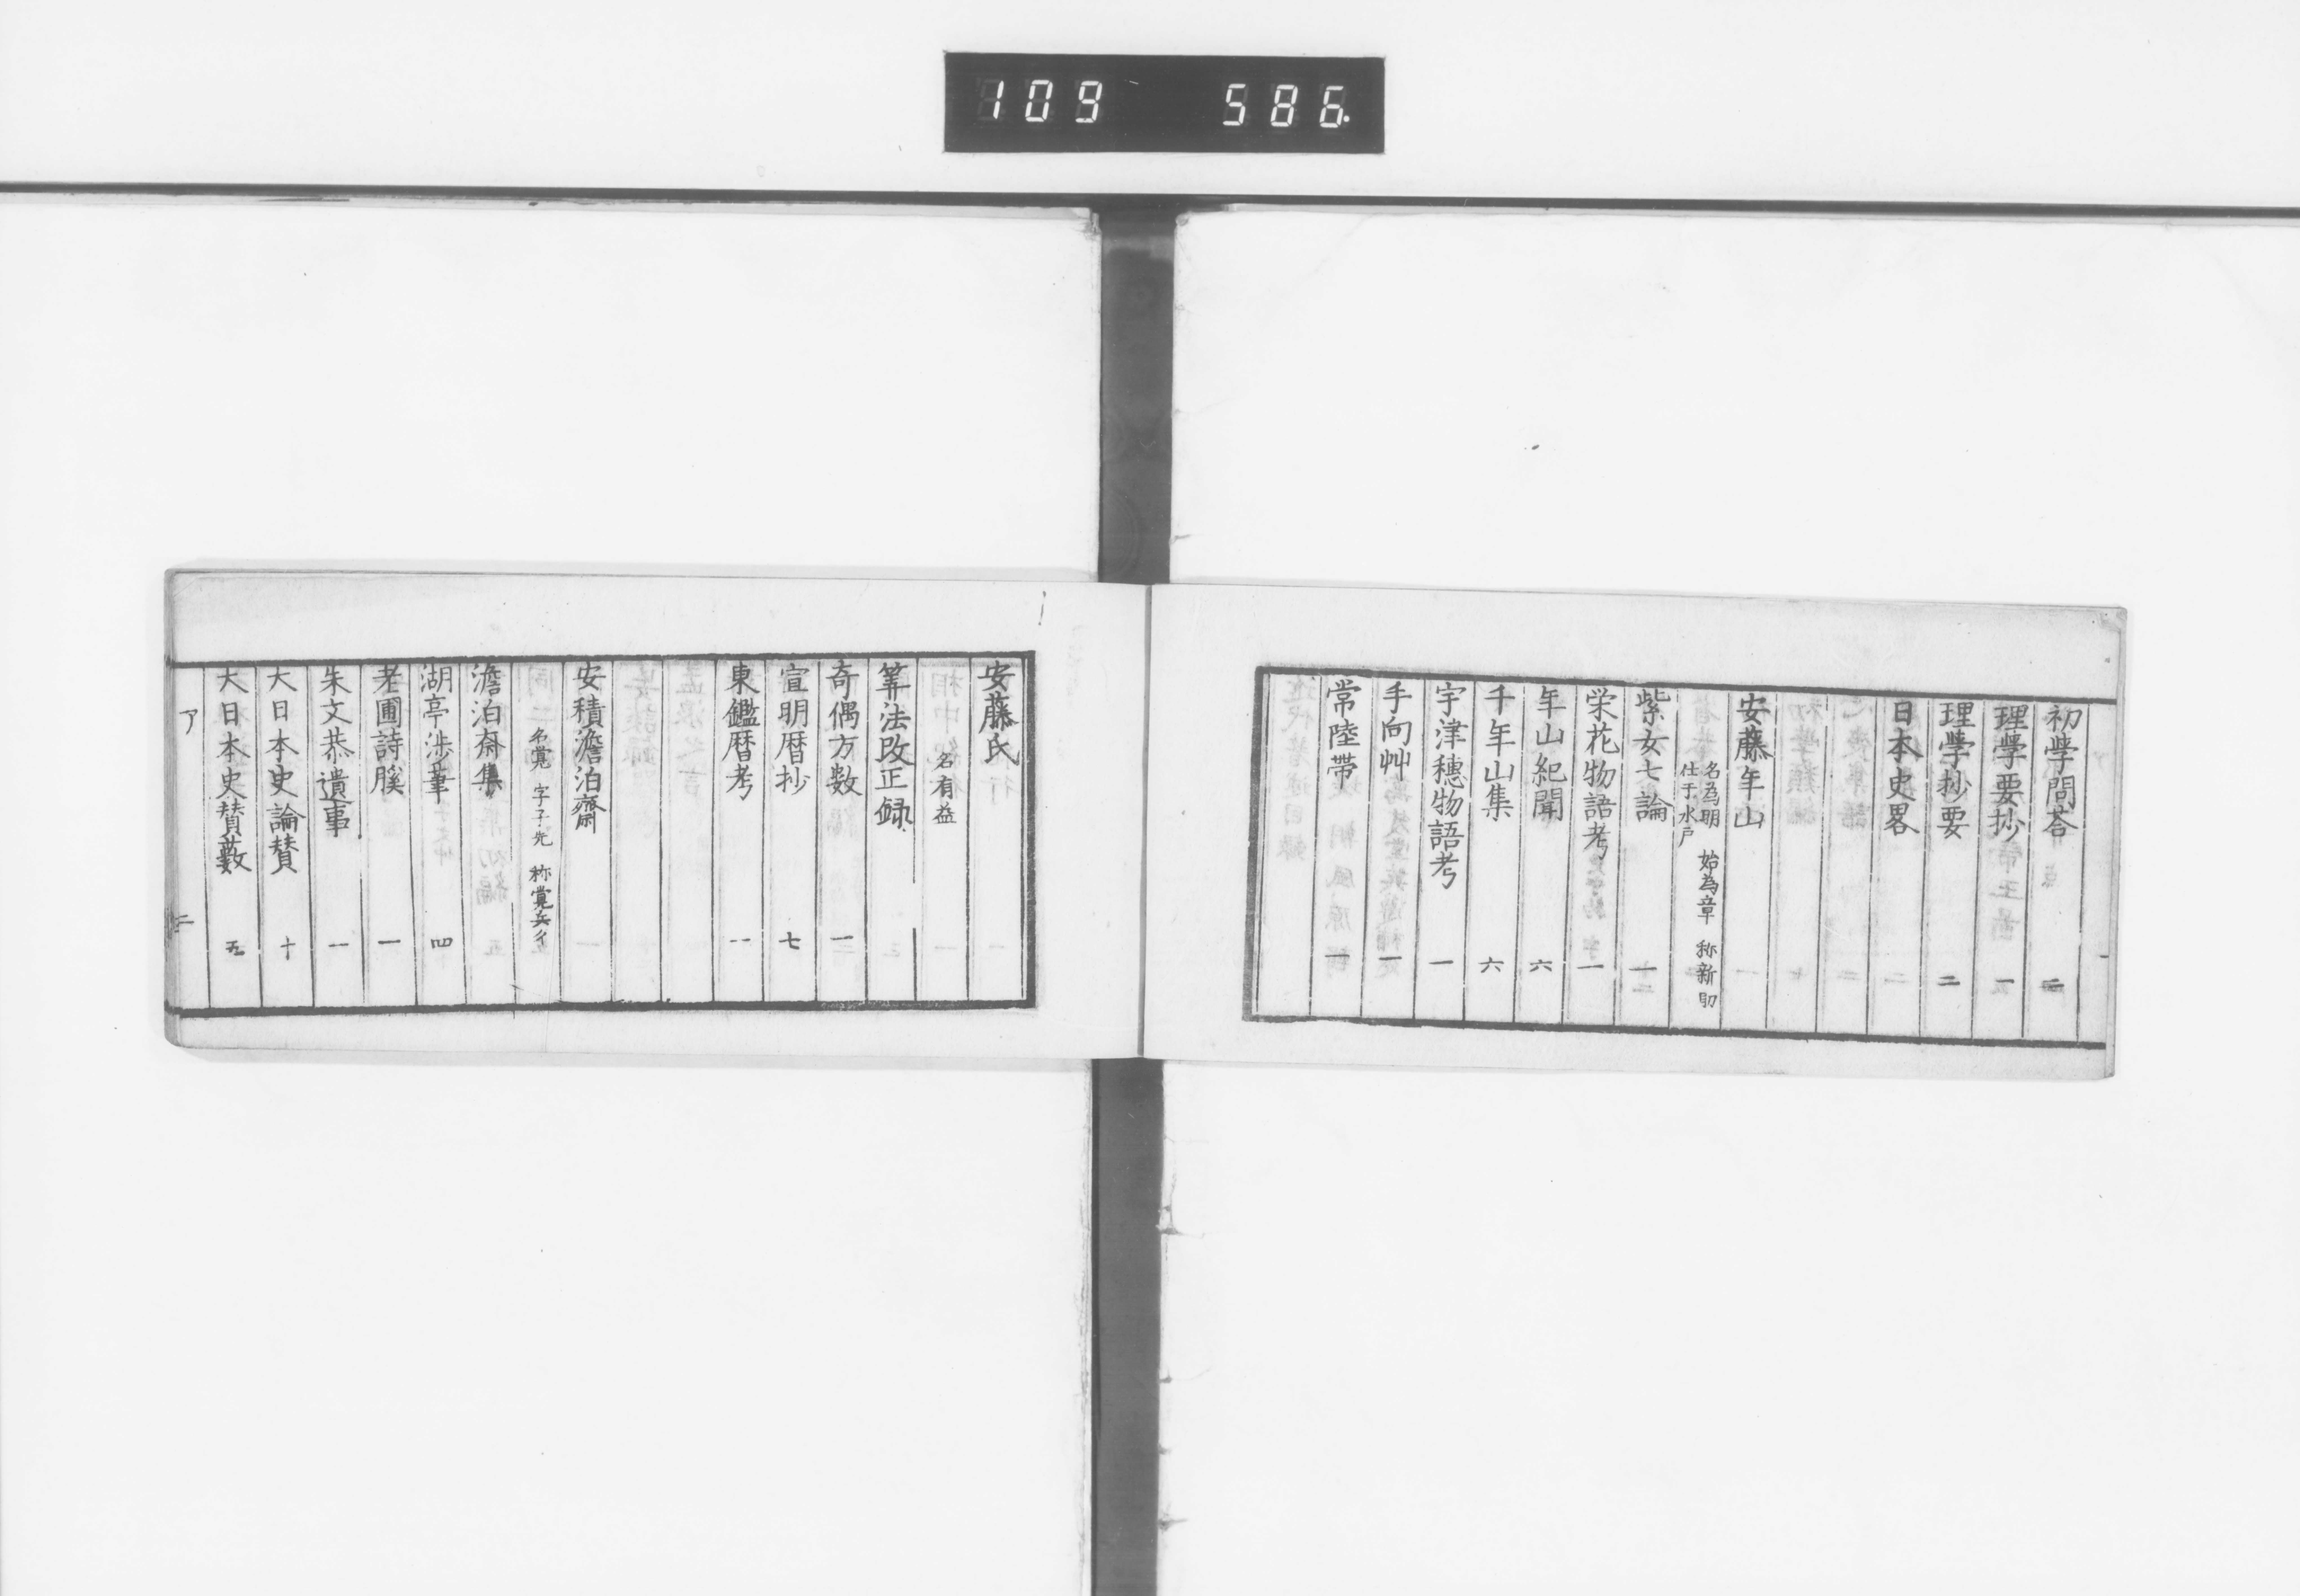 109 586
初学問荅 二
理学要抄 一
理学抄要 二
日本史畧
安藤年山
名為明 始為章 称新助
仕于水戸
紫女七論 一
栄花物語考 一
年山紀聞 六
千年山集 六
宇津穂物語考 一
手向艸 一
常陸帯 一
安藤氏
名有益
筭法改正録
奇偶方数 一
宣明暦抄 七
東鑑暦考 一
安積澹泊齋
名覚 字子先 称覚兵衛
澹泊斎集
湖亭渉筆 四
老圃詩䐑 一
朱文恭遺事 一
大日本史論賛 十
大日本史賛藪 五
ア 二